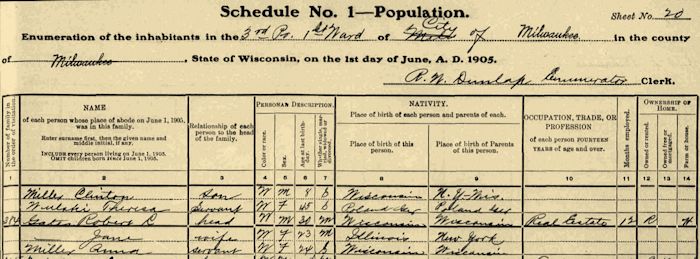 Schedule No. 1—Population. Sheet No. 20
Enumeration of the inhabitants in the 3rd Pr. 1st Ward of City of Milwaukee in the county
of Milwaukee, State of Wisconsin, on the 1st day of June, A. D. 1905.
R. W. Dunlap Enumerator Clerk.
Number of family in the order of visitation.
NAME
of each person whose place of abode on June 1, 1905, was in this family.
Enter surname first, then the given name and middle initial, if any.
INCLUDE every person living on June 1, 1905.
OMIT children born since June 1, 1905.
Relationship of each person to the head of the family.
PERSONAL DESCRIPTION.
Color or race.
Sex.
Age at last birthday.
Whether single, married, widowed or divorced.
NATIVITY.
Place of birth of each person and parents of each.
Place of birth of this person.
Place of birth of Parents of this person.
OCCUPATION, TRADE, OR PROFESSION
of each person FOURTEEN YEARS of age and over.
Months employed.
OWNERSHIP OF HOME.
Owned or rented.
Owned free or mortgaged.
Farm or house.
1 2 3 4 5 6 7 8 9 10 11 12 13 14
Miller Clinton son W M 8 S Wisconsin N.Y-Wis.
Theresa servant W F 45 S Poland Ger Poland Ger
Robert head W M 30 M Wisconsin Wisconsin Real Estate 12 R H
— Jane wife W F 23 M Illinois New York
Miller Anna servant W F 24 S Wisconsin Wisconsin